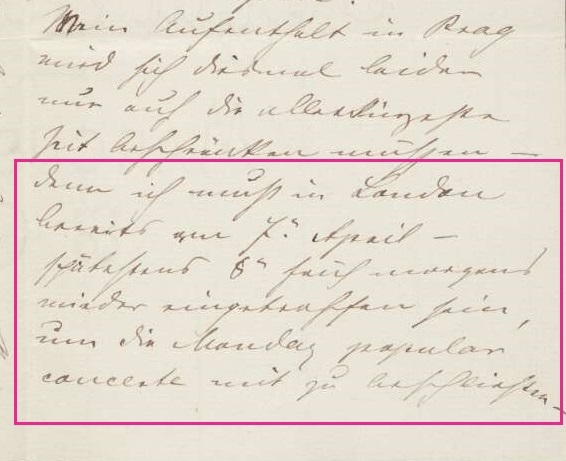 Mein Aufenthalt in Prag
wird sich diesmal leider
nur auf die allerkürzeste
Zeit beschränken müssen —
denn ich muß in London
bereits am 7.ⁿ April —
spätestens 8ⁿ früh morgens
wieder eingetroffen sein,
um die Monday popular
concerte mit zu beschließen —